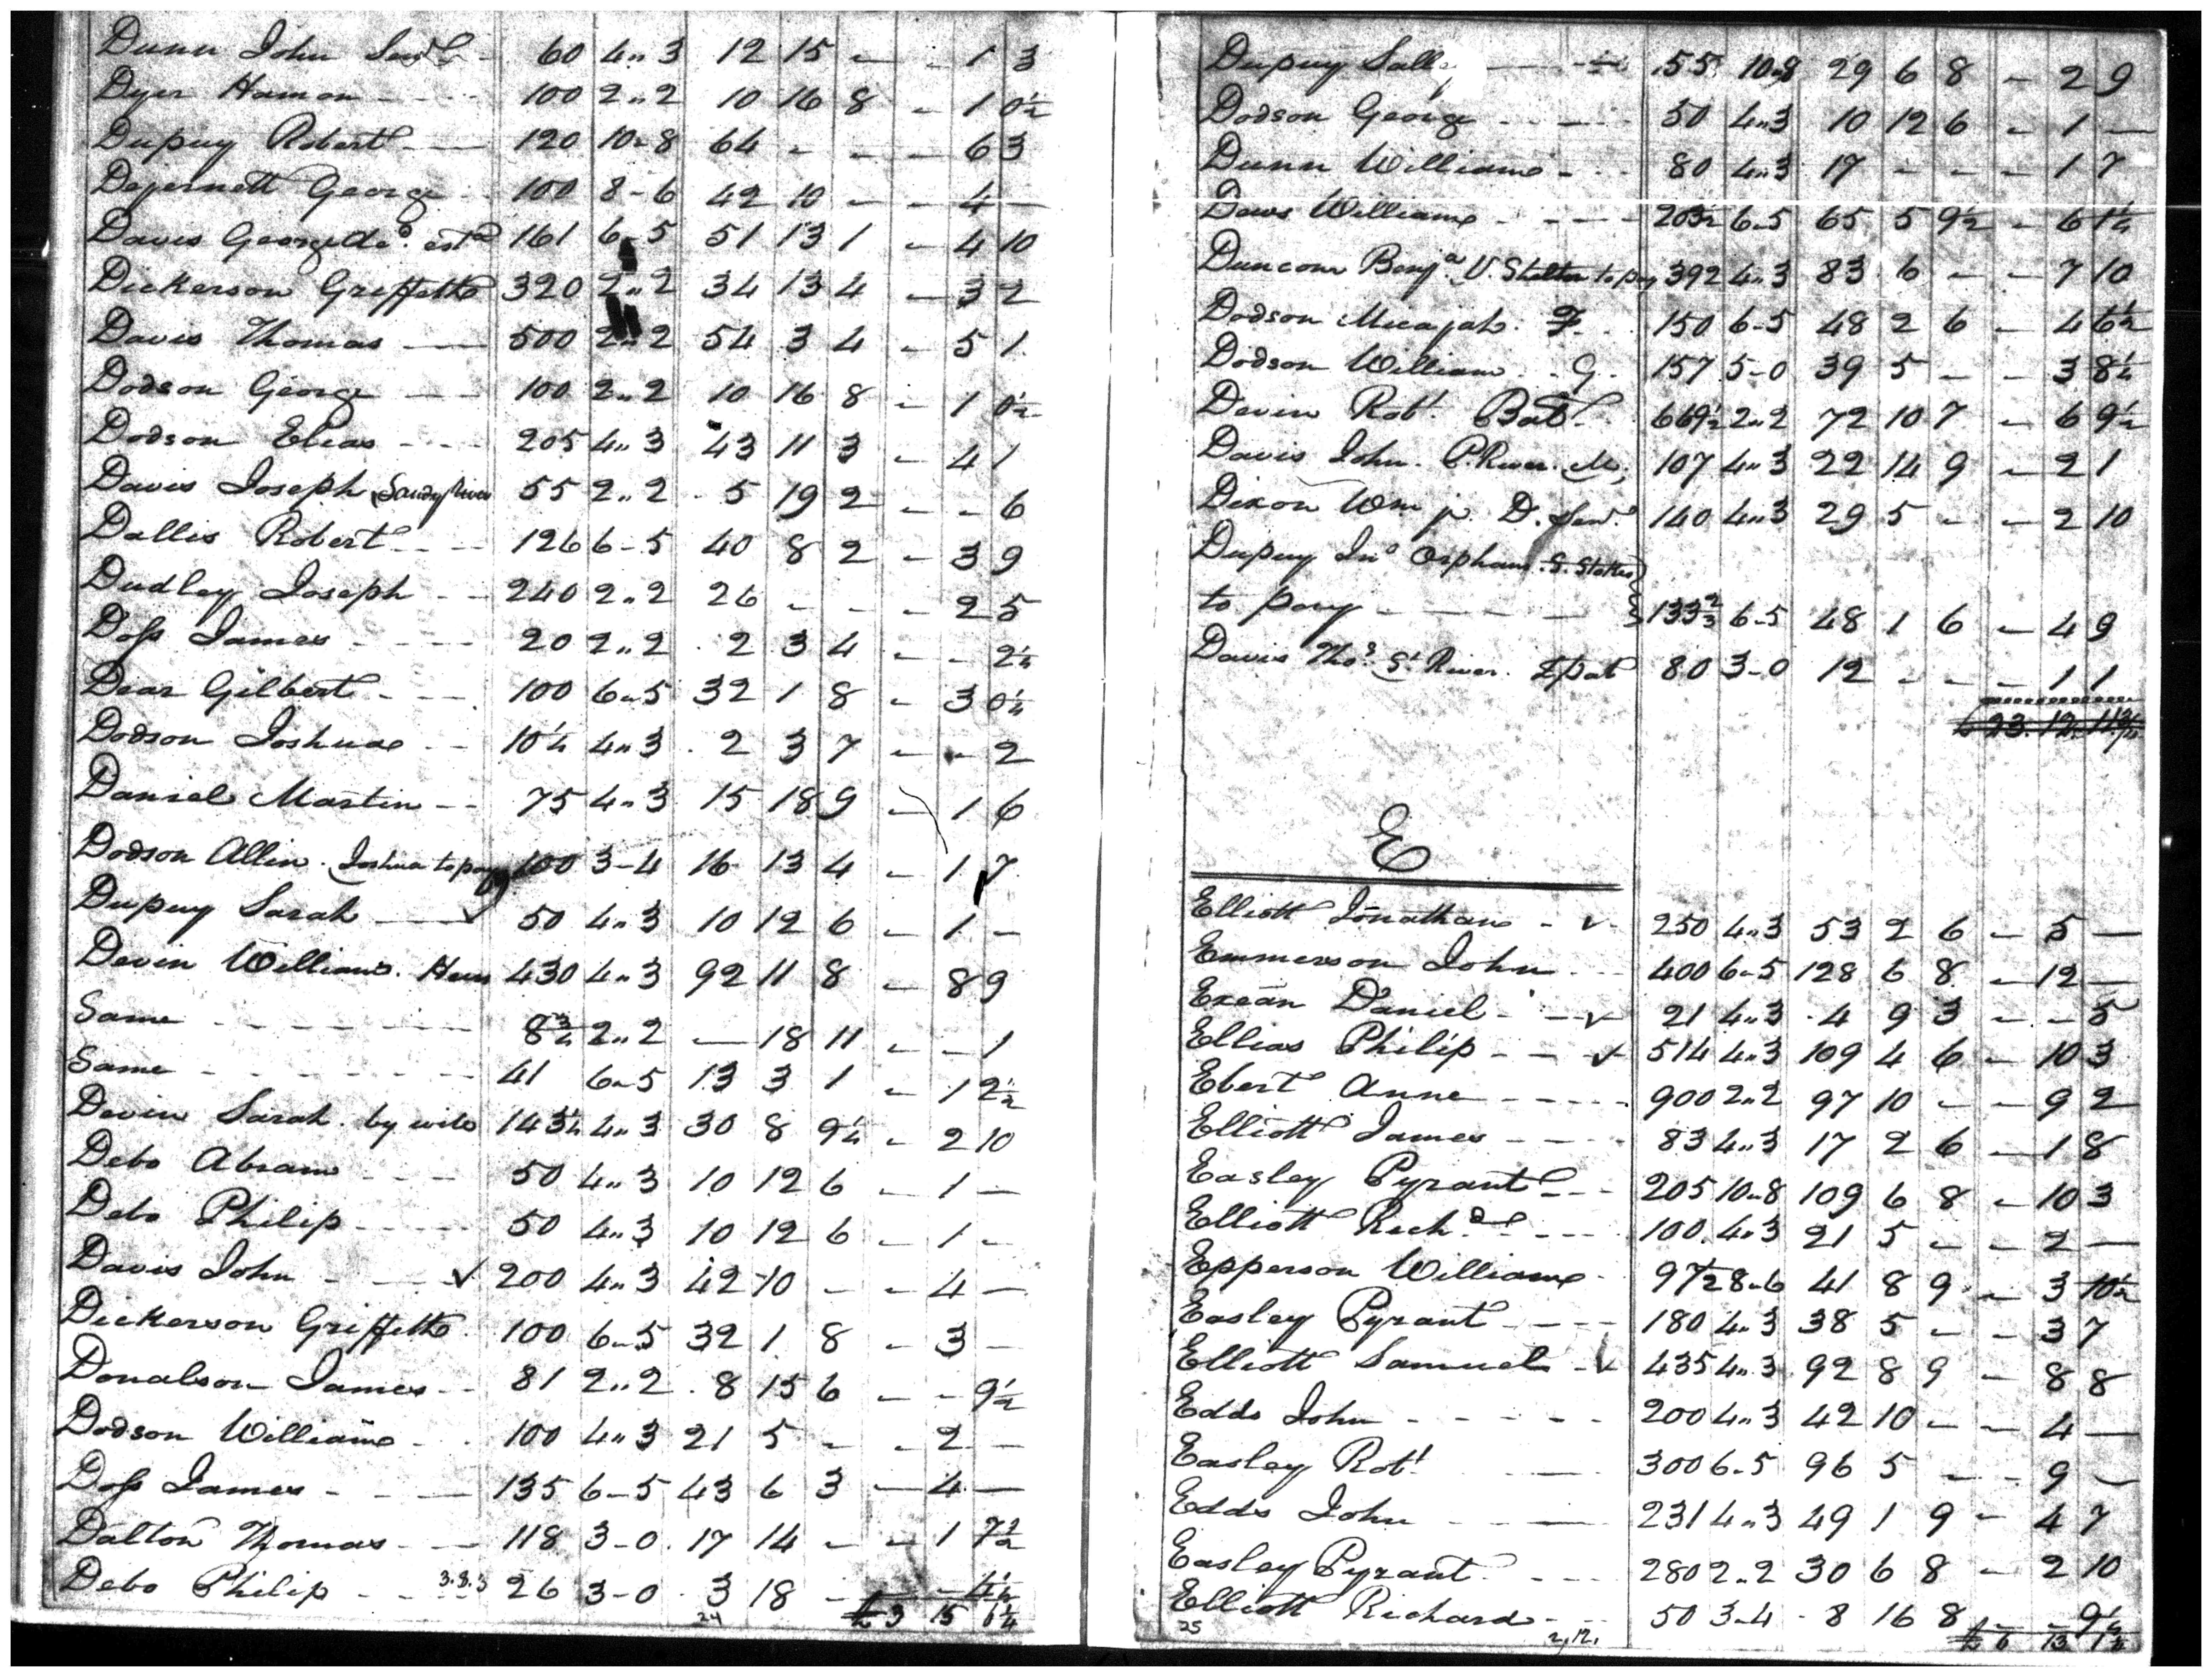 Dunn John Senr - 60 4"3 12 15 - - 1 3
Dyer Hamon - - - - 100 2"2 10 16 8 - 1 0½
Dupuy Robert - - 120 10-8 64 - - - 6 3
Dejernett George - - 100 8-6 42 10 - - 4 -
Davis George decd. estd 161 6-5 51 13 1 - 4 10
Dickerson Griffeth 320 2"2 34 13 4 - 3 2
Davis Thomas - - 500 2"2 54 3 4 - 5 1
Dodson George - - 100 2"2 10 16 8 - 1 0½
Dodson Elias - - - - 205 4"3 43 11 3 - 4 1
Davis Joseph Sandy River 55 2"2 5 19 2 - - 6
Dallis Robert - - - 126 6-5 40 8 2 - 3 9
Dudley Joseph - - 240 2"2 26 - - - 2 5
Doss James - - - - 20 2"2 2 3 4 - - 2¼
Dear Gilbert - - - 100 6-5 32 1 8 - 3 0¼
Dodson Joshua - - 10¼ 4"3 2 3 7 - - 2
Daniel Martin - - 75 4"3 15 18 9 - 1 6
Dodson Allin. Joshua to pay 100 3-4 16 13 4 - 1 7
Dupuy Sarah - - ✓ 50 4"3 10 12 6 - 1 -
Devin William. Heirs 430 4"3 92 11 8 - 8 9
Same - - - - - - - 8¾ 2"2 - 18 11 - - 1
Same - - - - - - - 41 6-5 13 3 1 - 1 2½
Devin Sarah. by wile 143¼ 4"3 30 8 9¼ - 2 10
Debo Abram - - - 50 4"3 10 12 6 - 1 -
Debo Philip - - - - 50 4"3 10 12 6 - 1 -
Davis John - - - ✓ 200 4"3 42 10 - - 4 -
Dickerson Griffeth 100 6-5 32 1 8 - 3 -
Donalson James - - 81 2"2 8 15 6 - - 9½
Dodson William - - 100 4"3 21 5 - - 2 -
Doss James - - - 135 6-5 43 6 3 - 4 -
Dalton Thomas - - 118 3-0 17 14 - - 1 7½
Debo Philip - - 3.8.3 26 3-0 3 18 - - - 4½
24 £ 3 15 6¼
Dupuy Sall - - 55 10-8 29 6 8 - 2 9
Dodson George - - - 50 4"3 10 12 6 - 1 -
Dunn William - - - 80 4"3 17 - - - 1 7
Daws William - - - 203½ 6-5 65 5 9½ - 6 1¼
Duncom Benja. V. Shelton to pay 392 4"3 83 6 - - 7 10
Dodson Micajah. F. 150 6-5 48 2 6 - 4 6½
Dodson William. - G. 157 5-0 39 5 - - 3 8¼
Devin Robt. Bat. 669½ 2"2 72 10 7 - 6 9½
Davis John. P. River. M. 107 4"3 22 14 9 - 2 1
Dixon Wm jr. D. Senr. 140 4"3 29 5 - - 2 10
Dupuy Jno Orphans. S. Stokes
to pay - - - - - 133⅔ 6-5 48 1 6 - 4 9
Davis Thos. St River. Spat 80 3-0 12 - - - 1 1
£ 23. 12. 11¾
E
Elliott Jonathan - ✓ 250 4"3 53 2 6 - 5 -
Emmerson John - - 400 6-5 128 6 8 - 12 -
Exean Daniel - - ✓ 21 4"3 4 9 3 - - 5
Ellias Philip - - ✓ 514 4"3 109 4 6 - 10 3
Ebert Anne - - - - 900 2"2 97 10 - - 9 2
Elliott James - - - 83 4"3 17 2 6 - 1 8
Easley Pyrant - - - 205 10-8 109 6 8 - 10 3
Elliott Richd - - - 100 4"3 21 5 - - 2 -
Epperson William - 97½ 8-6 41 8 9 - 3 10½
Easley Pyrant - - - 180 4"3 38 5 - - 3 7
Elliott Samuel - ✓ 435 4"3 92 8 9 - 8 8
Edds John - - - - - 200 4"3 42 10 - - 4 -
Easley Robt - - 300 6-5 96 5 - - 9 -
Edds John - - - 231 4"3 49 1 9 - 4 7
Easley Pyrant - - - 280 2"2 30 6 8 - 2 10
Elliott Richard - - 50 3-4 8 16 8 - - 9½
25 2,12, £ 6 13 1½